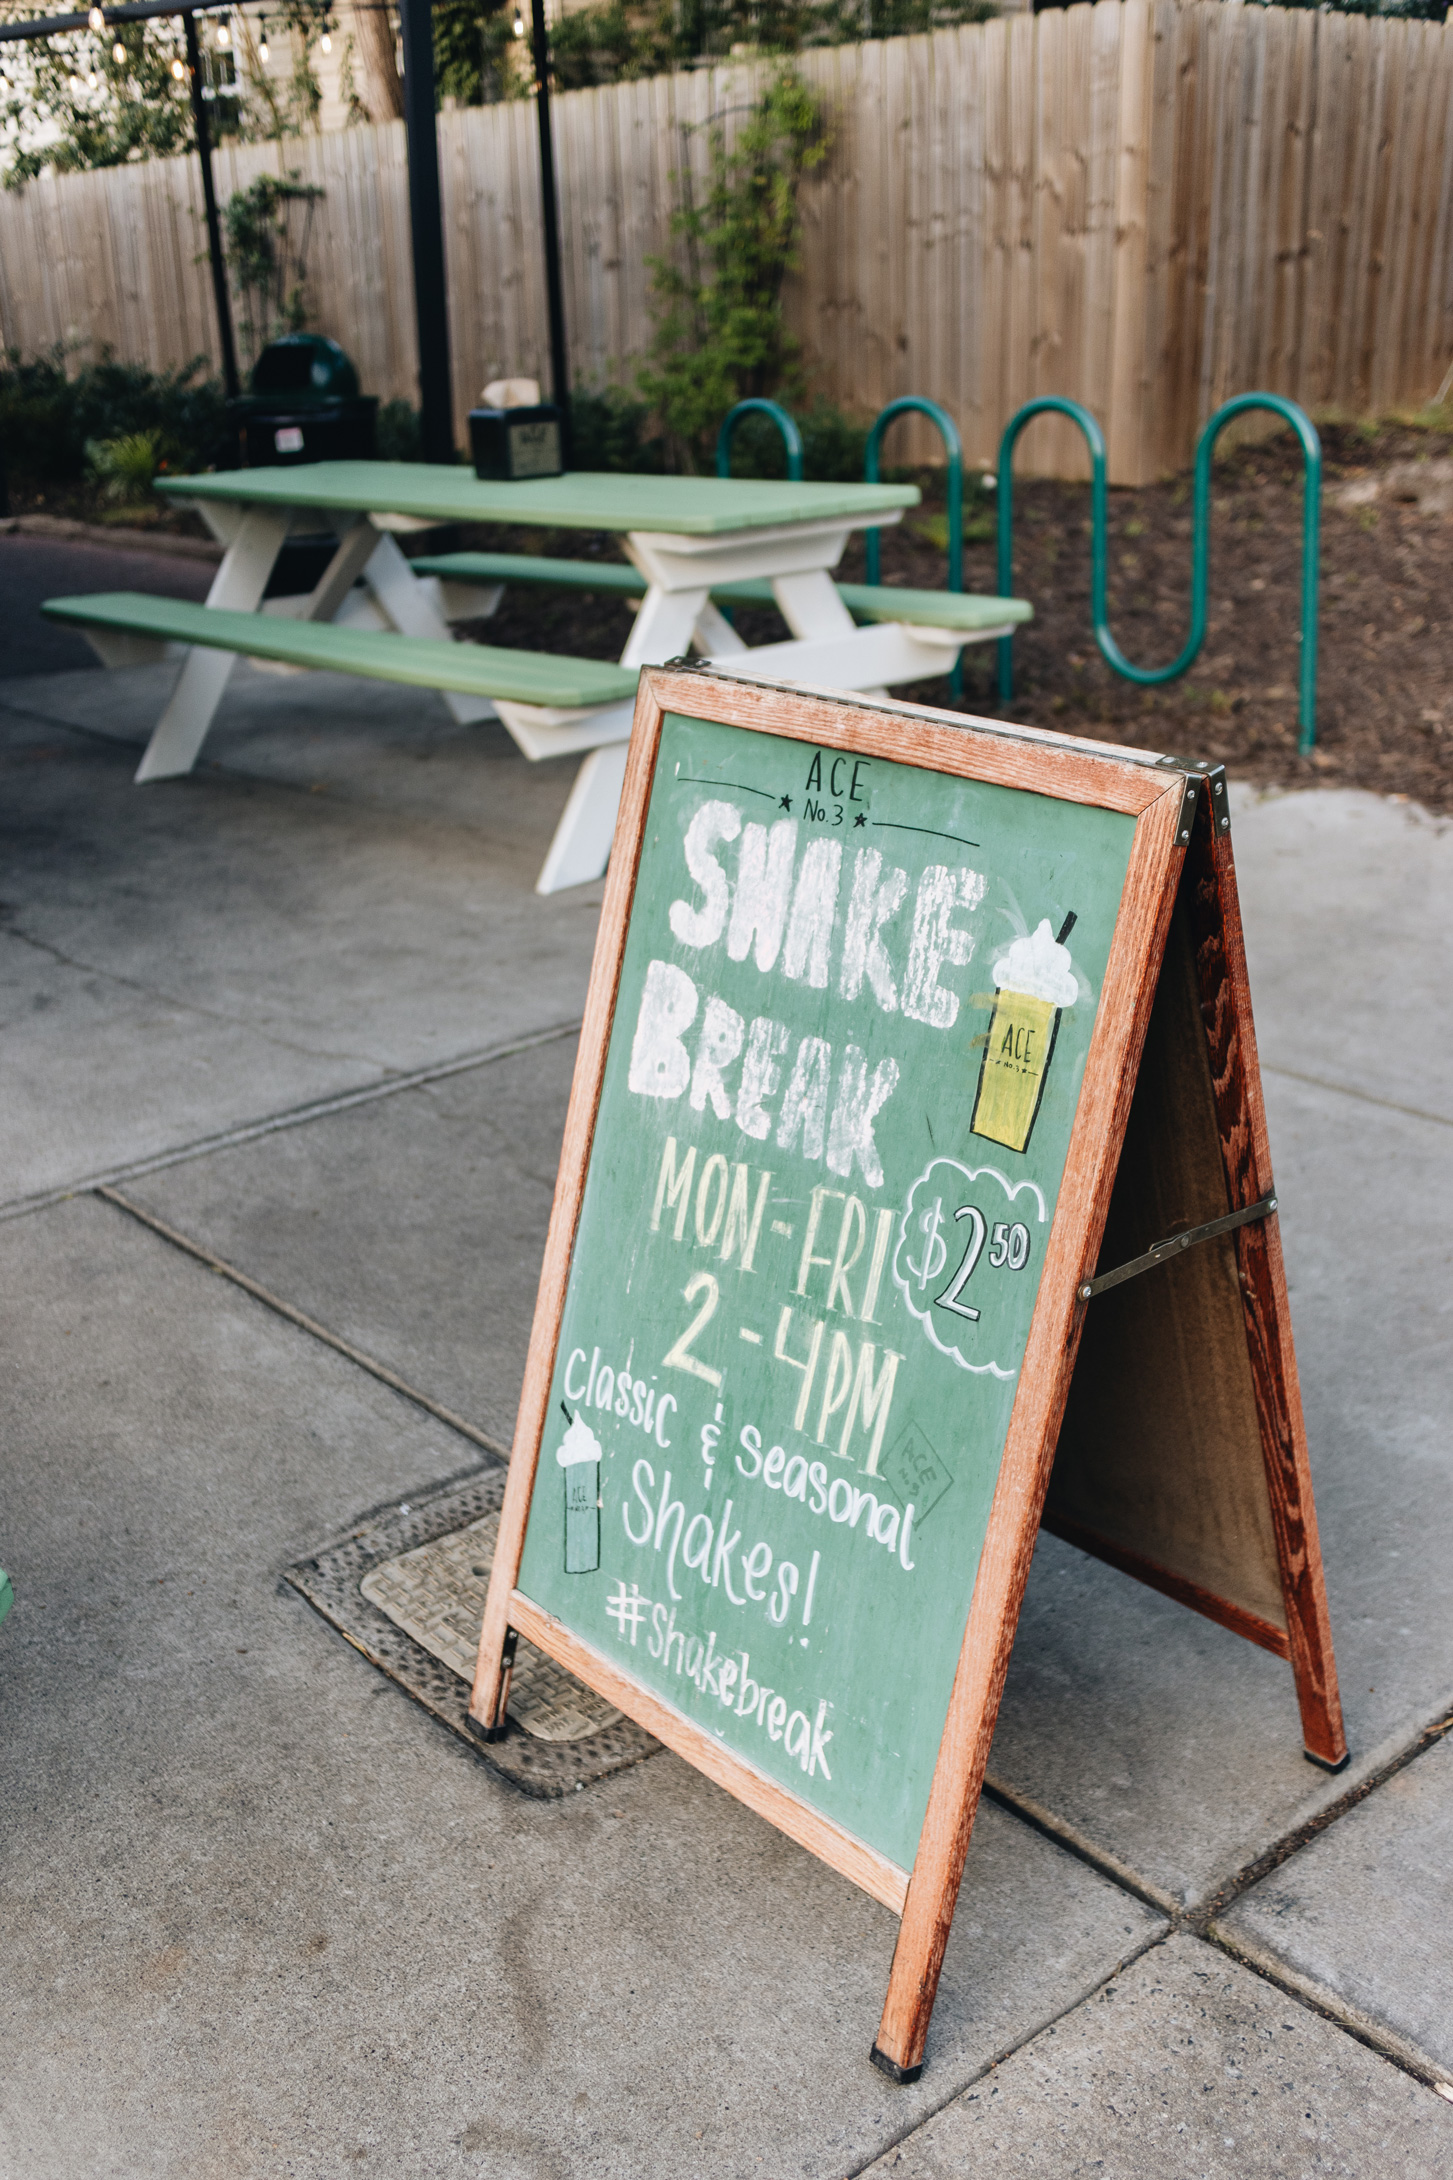 ACE
No.3
SHAKE
BREAK
MON-FRI
$2.50
2-4PM
classic & seasonal
Shakes!
#shakebreak
ACE
No.3
ACE
ACE